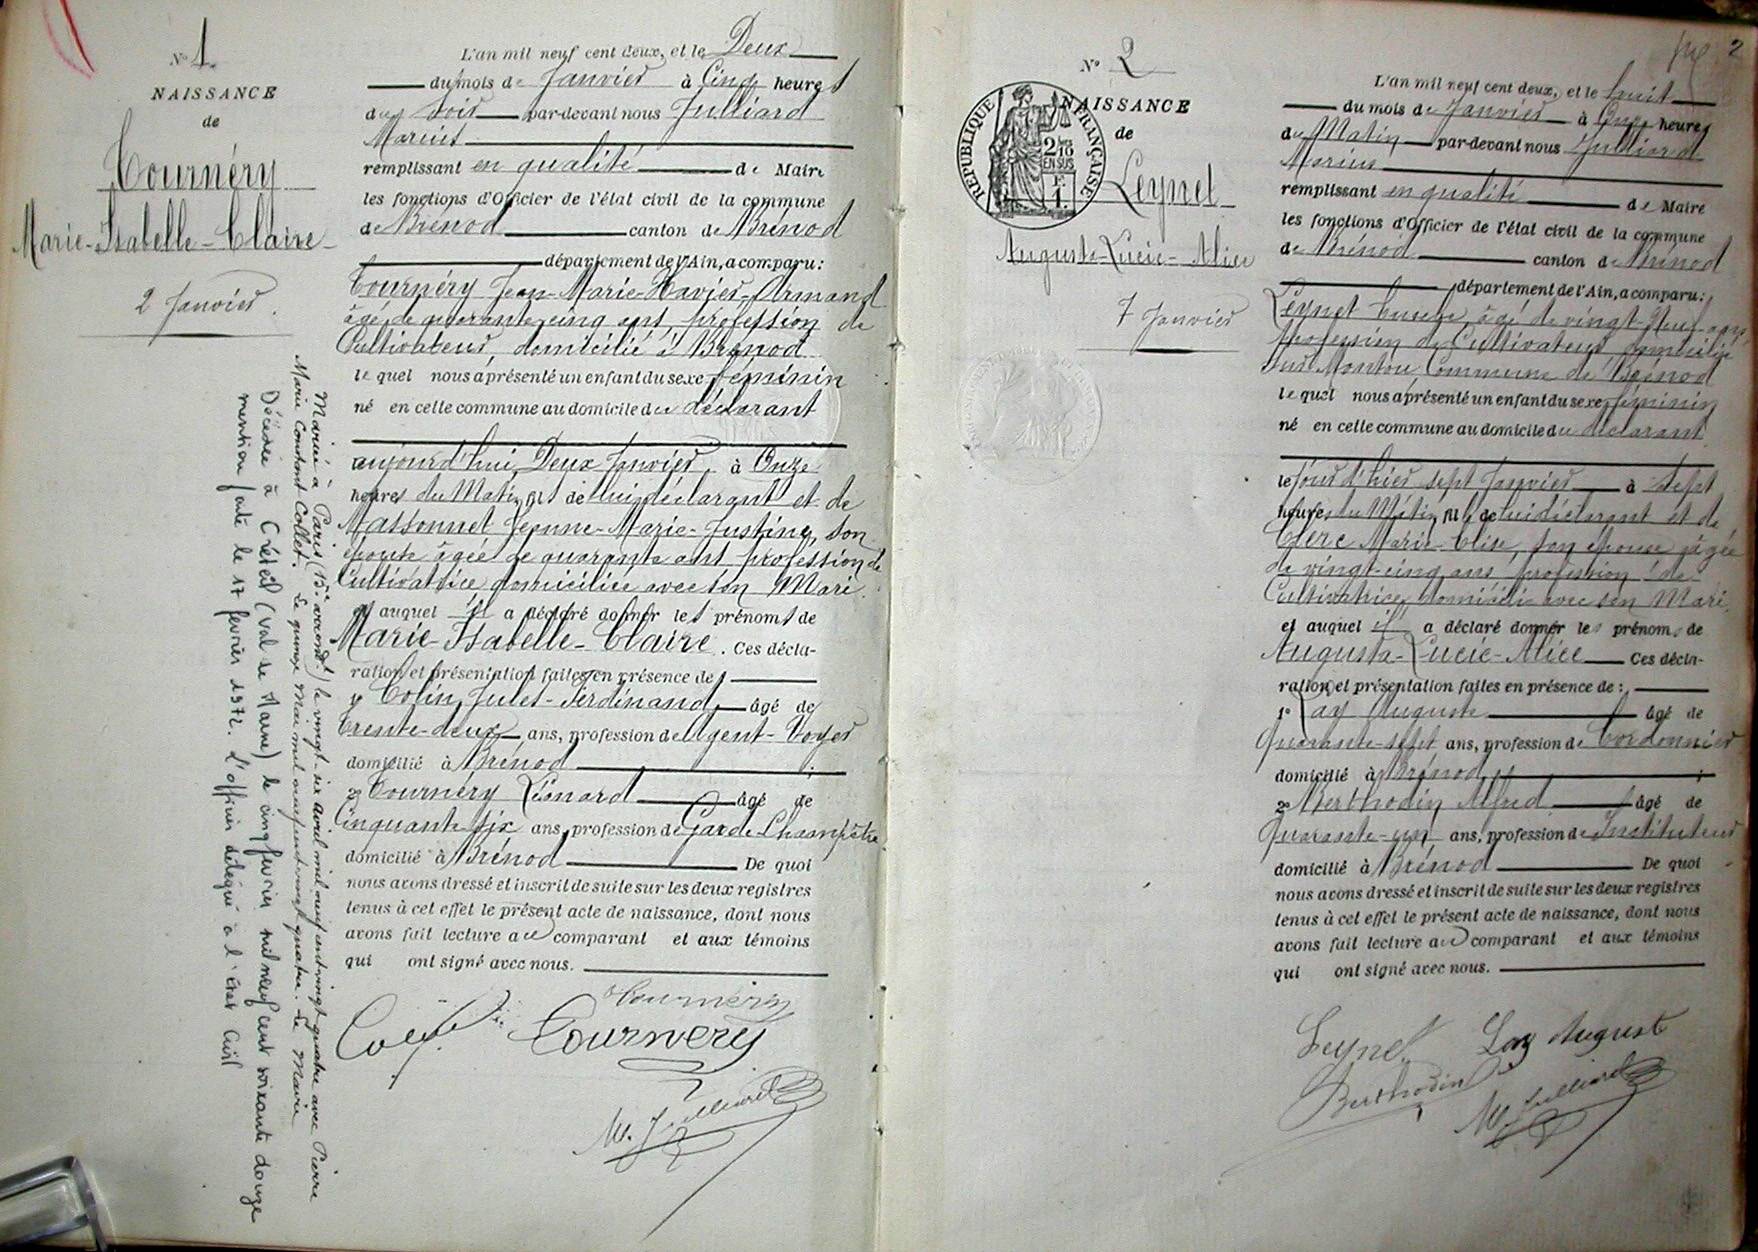 N° 1
NAISSANCE
de
Tournéry
Marie-Isabelle-Claire
2 Janvier.
Mariée à Paris (15e arrondt) le vingt-six avril mil neuf cent vingt quatre avec Pierre
Marie Constant Collet. Le quinze Mai mil neuf cent vingt quatre. Le Maire
Décédée à Créteil (Val de Marne) le cinq février mil neuf cent soixante douze
mention faite le 17 février 1972. L'officier délégué à l'état Civil
L'an mil neuf cent deux, et le Deux
du mois de Janvier à Cinq heures
du soir par-devant nous Julliard
Marius
remplissant en qualité de Maire
les fonctions d'Officier de l'état civil de la commune
de Brénod canton de Brénod
département de l'Ain, a comparu:
Tournéry Jean-Marie-Xavier-Armand
âgé de quarante cinq ans, profession de
Cultivateur, domicilié à Brénod
lequel nous a présenté un enfant du sexe féminin
né en cette commune au domicile du déclarant
aujourd'hui, Deux Janvier, à Onze
heures du Matin, fil de lui déclarant et de
Massonnet Jeanne-Marie-Justine, son
épouse âgée de quarante ans profession de
Cultivatrice, domiciliée avec son Mari.
et auquel il a déclaré donner les prénoms de
Marie-Isabelle-Claire. Ces décla-
ration et présentation faites en présence de
1° Colin Jules-Ferdinand, âgé de
trente-deux ans, profession de Agent-Voyer
domicilié à Brénod ;
2° Tournéry Léonard âgé de
Cinquante six ans, profession de Garde-Champêtre
domicilié à Brénod De quoi
nous avons dressé et inscrit de suite sur les deux registres
tenus à cet effet le présent acte de naissance, dont nous
avons fait lecture au comparant et aux témoins
qui ont signé avec nous.
Tournéry
Tournery
M. Julliard
2
N° 2
RÉPUBLIQUE FRANÇAISE
2/10
EN SUS
NAISSANCE
de
Leynet
Augusta-Lucie-Alice
7 Janvier
L'an mil neuf cent deux, et le huit
du mois de Janvier à Onze heures
du Matin par-devant nous Julliard
Marius
remplissant en qualité de Maire
les fonctions d'Officier de l'état civil de la commune
de Brénod canton de Brénod
département de l'Ain, a comparu:
Leynet Eusèbe, âgé de vingt-Neuf ans
profession de Cultivateur domicilié
sur Montou, Commune de Brénod
lequel nous a présenté un enfant du sexe féminin
né en cette commune au domicile du déclarant
le jour d'hier sept Janvier à Sept
heures du Matin, fil de lui déclarant et de
Clerc Marie-Elise, son épouse âgée
de vingt-cinq ans, profession de
Cultivatrice, domiciliée avec son Mari,
et auquel il a déclaré donner les prénoms de
Augusta-Lucie-Alice Ces décla-
ration et présentation faites en présence de:
1° Lay Auguste âgé de
Quarante-sept ans, profession de Cordonnier
domicilié à Brénod ;
2° Berthodin Alfred âgé de
Quarante-un ans, profession de Instituteur
domicilié à Brénod De quoi
nous avons dressé et inscrit de suite sur les deux registres
tenus à cet effet le présent acte de naissance, dont nous
avons fait lecture au comparant et aux témoins
qui ont signé avec nous.
Leynet Lay August
Berthodin
M. Julliard